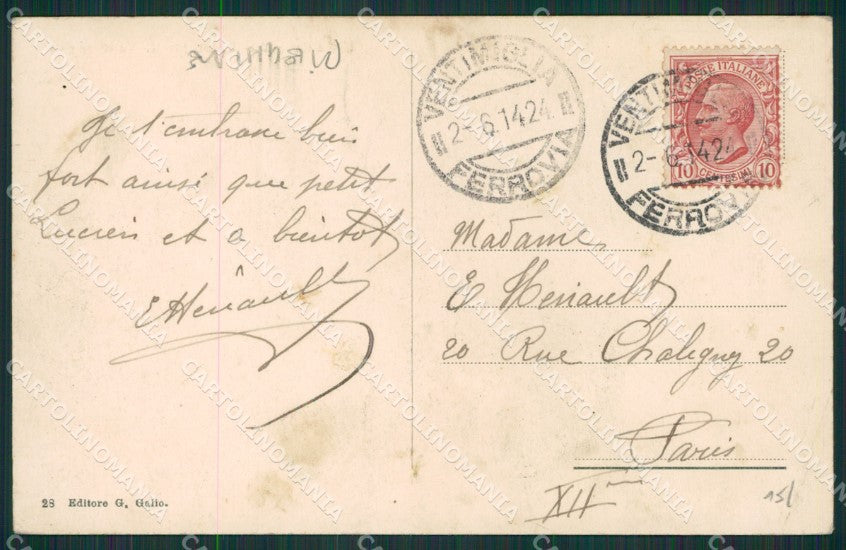 Je t'embrasse bien
fort ainsi que petit
Lucien et a bientot
E Hénault
28 Editore G. Galio.
VENTIMIGLIA
2-6.14 24
FERROVIA
VENTIMI
2-6.14 24
FERROVIA
POSTE ITALIANE
10 CENTESIMI 10
Madame
E Hénault
20 Rue Chaligny 20
Paris
XII me
15/
CARTOLINOMANIA